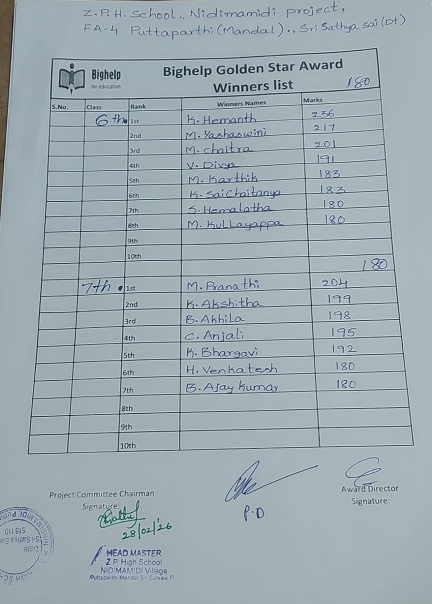 Z.P.H. School., Nidimamidi project,
FA-4 Puttaparthi(Mandal)., Sri Sathya Sai (Dt)
Bighelp
for education
Bighelp Golden Star Award
Winners list
180
S.No. Class Rank Winners Names Marks
6th. 1st K. Hemanth 236
2nd M. Yashaswini 217
3rd M. Chaitra 201
4th V. Divya 191
5th M. Karthik 183
6th K. Sai Chaitanya 183
7th S. Hemalatha 180
8th M. Kullayappa 180
9th
10th
180
7th. 1st M. Pranathi 204
2nd K. Akshitha 199
3rd B. Akhila 198
4th C. Anjali 195
5th K. Bhargavi 192
6th H. Venkatesh 180
7th B. Ajay Kumar 180
8th
9th
10th
Project Committee Chairman
Signature:
28/02/26
P.D
Award Director
Signature:
HEAD MASTER
Z.P. High School
NIDIMAMIDI Village
Puttaparthi Mandal